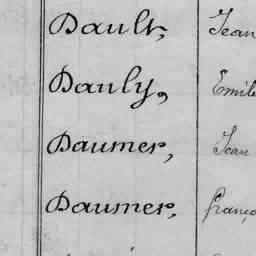 Dault, Jean
Dauly, Emile
Daumer, Jean
Daumer, franço